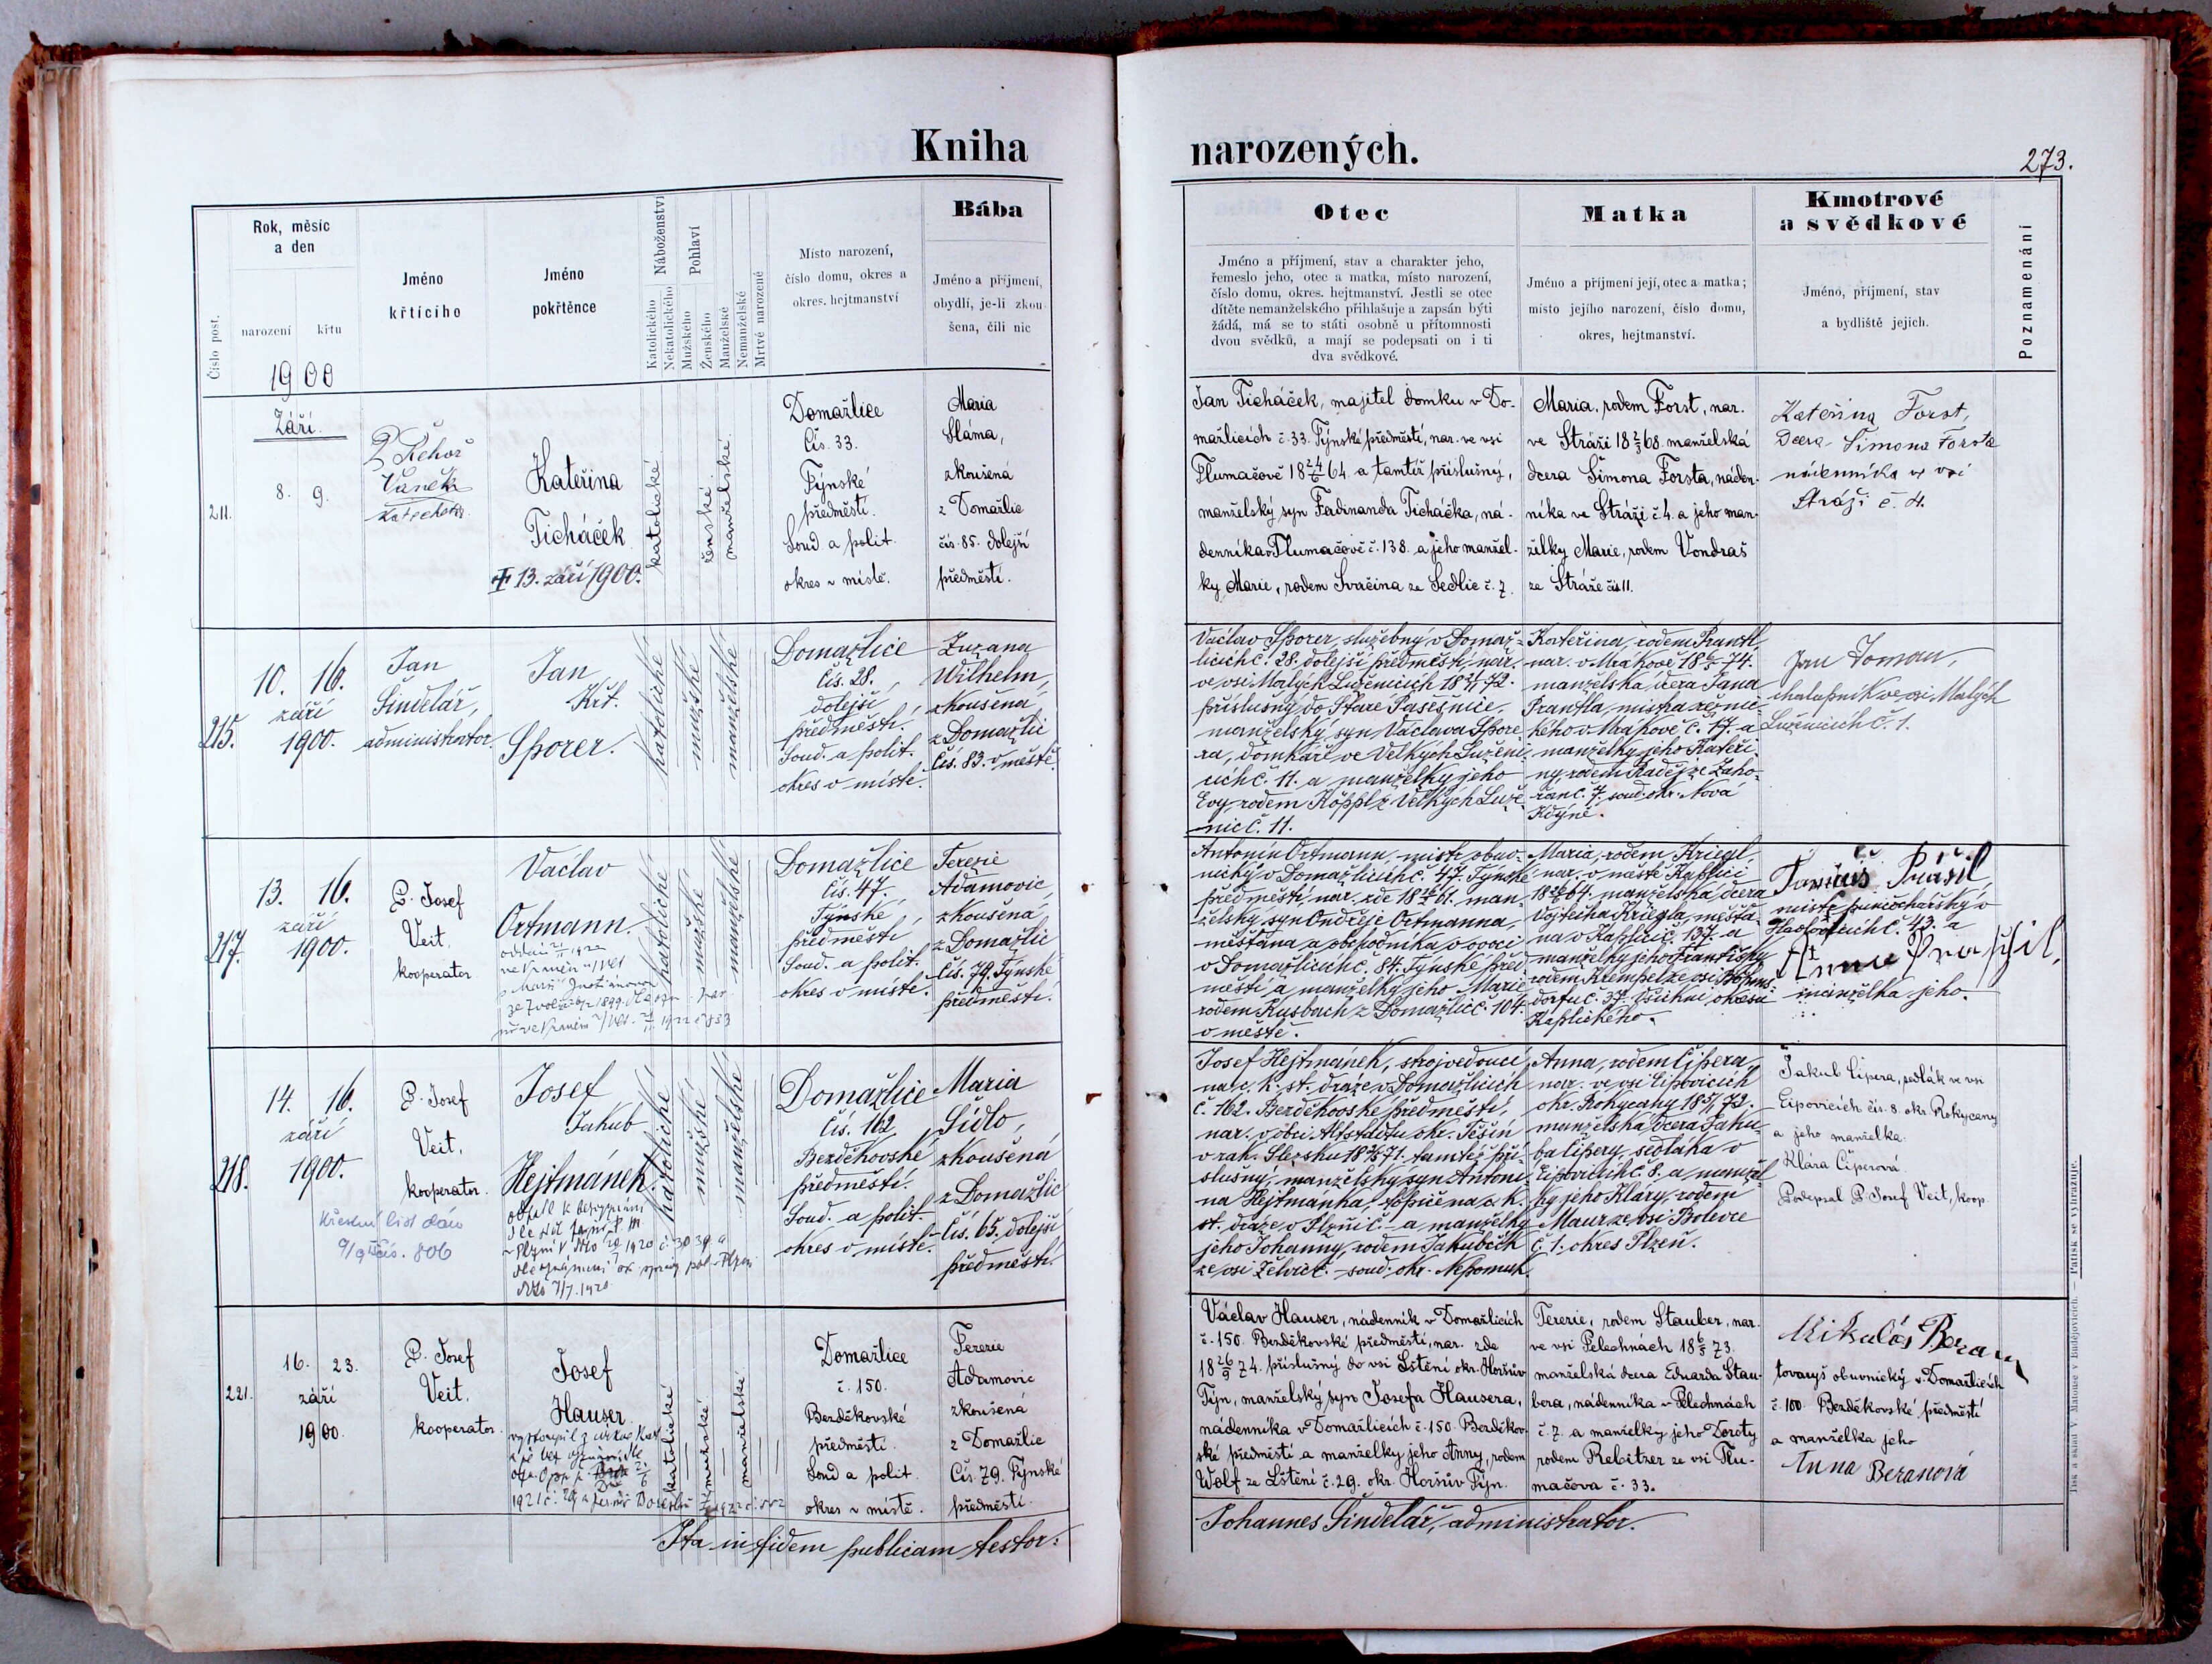 Kniha
Číslo post.
Rok, měsíc
a den
narození
křtu
19 00
Jméno
křtícího
Jméno
pokřtěnce
Náboženství
Katolického
Nekatolického
Pohlaví
Mužského
Ženského
Manželské
Nemanželské
Mrtvě narozené
Místo narození,
číslo domu, okres a
okres. hejtmanství
Bába
Jméno a příjmení,
obydlí, je-li zkou-
šena, čili nic
211.
Září.
8.
9.
P. Řehoř
Vaněk
katecheta
Kateřina
Ticháček
13. září 1900.
katolické
ženské.
manželské.
Domažlice
Čís. 33.
Týnské
předměstí.
Soud a polit.
okres v místě.
Maria
Sláma,
zkoušená
z Domažlic
čís. 85. dolejší
předměstí.
215.
10.
16.
září
1900.
Jan
Šindelář,
administrator.
Jan
Křt.
Sporer.
katolické
mužské
manželské
Domažlice
Čís. 28.
dolejší
předměstí.
Soud. a polit.
okres v místě.
Zuzana
Wilhelm,
zkoušená
z Domažlic
Čís. 83. v městě.
217.
13.
16.
září
1900.
P. Josef
Veit.
kooperator
Václav
Ortmann.
katolické
mužské
manželské
Domažlice
Čís. 47.
Týnské
předměstí
Soud. a polit.
okres v místě.
Terezie
Adamovic,
zkoušená
z Domažlic
Čís. 79. Týnské
předměstí.
218.
14.
16.
září
1900.
P. Josef
Veit,
kooperator.
Křestní list dán
čís. 806
Josef
Jakub
Hejtmánek.
katolické
mužské
manželské
Domažlice
Čís. 162
Bezděkovské
předměstí.
Soud. a polit.
okres v místě.
Maria
Sídlo,
zkoušená
z Domažlic
Čís. 65. dolejší
předměstí.
221.
16.
23.
září
1900.
P. Josef
Veit.
kooperator.
Josef
Hauser
katolické
mužské
manželské
Domažlice
č. 150.
Bezděkovské
předměstí.
Soud a polit.
okres v místě.
Terezie
Adamovic
zkoušená
z Domažlic
Čís. 79. Týnské
předměstí.
Ita in fidem publicam testor:
narozených.
273.
Otec
Jméno a příjmení, stav a charakter jeho,
řemeslo jeho, otec a matka, místo narození,
číslo domu, okres. hejtmanství. Jestli se otec
dítěte nemanželského přihlašuje a zapsán býti
žádá, má se to státi osobně u přítomnosti
dvou svědků, a mají se podepsati on i ti
dva svědkové.
Matka
Jméno a příjmení její, otec a matka;
místo jejího narození, číslo domu,
okres, hejtmanství.
Kmotrové
a svědkové
Jméno, příjmení, stav
a bydliště jejich.
Poznamenání
Jan Ticháček, majitel domku v Do-
mažlicích č. 33. Týnské předměstí, nar. ve vsi
Tlumačově 18 24/6 64 a tamtéž příslušný,
manželský syn Ferdinanda Ticháčka, ná-
denníka v Tlumačově č. 138. a jeho manžel-
ky Marie, rodem Svačina ze Sedlic č. 7.
Maria, rodem Forst, nar.
ve Stráži 18 2/3 68. manželská
dcera Šimona Forsta, náden-
níka ve Stráži č. 4. a jeho man-
želky Marie, rodem Vondraš
ze Stráže čís 11.
Kateřina Forst,
dcera Šimona Forsta
nádenníka ve vsi
Stráži č. 4.
Václav Sporer, služebný v Domaž-
licích č. 28. dolejší předměstí, nar.
ve vsi Malých Luženicích
příslušný do Staré Pasečnice,
manželský syn Václava Spore-
ra, domkáře ve Velkých Luženi-
cích č. 11. a manželky jeho
Evy, rodem Köppl z Velkých Luže-
nic č. 11.
Kateřina, rodem Frantl,
nar. v Mrákově
manželská dcera Jana
Frantla, mistra řeznic-
kého v Mrákově č. 17. a
manželky jeho Kateři-
ny, rodem Kaděj ze Zaho-
řan č. 7. soud. okr. Nová
Kdyně.
Jan Toman,
chalupník ve vsi Malých
Luženicích č. 1.
Antonín Ortmann, mistr obuv-
nický v Domažlicích č. 47. Týnské
předměstí, nar. zde man-
želský syn Ondřeje Ortmanna,
měšťana a obchodníka v ovoci
v Domažlicích č. 84. Týnské před-
městí a manželky jeho Marie
rodem Kusbach z Domažlic č. 104.
v městě.
Maria, rodem Kriegl,
nar. v městě Kaplici
manželská dcera
Vojtěcha Kriegla, měšťa-
na v Kaplici č. 137. a
manželky jeho Františky
rodem Krempel ze vsi
č. 37. Všichni okresu
Kaplického.
Prášil,
mistr
č. 43. a
Anna Praschil,
manželka jeho.
Josef Hejtmánek, strojvedoucí
na c. k. st. dráze v Domažlicích
č. 162. Bezděkovské předměstí,
nar. v obci Altstadtu okr. Těšín
v rak. Slezsku tamtéž pří-
slušný, manželský syn Antoní-
na Hejtmánka, topiče na c. k.
st. dráze v Plzni č. a manželky
jeho Johanny, rodem Jakubčík
ze vsi Želvic č. – soud. okr. Nepomuk.
Anna, rodem Čipera,
nar. ve vsi Lipovicích
okr. Rokycany
manželská dcera Jaku-
ba Čipery, sedláka v
Lipovicích č. 8. a manžel-
ky jeho Kláry, rodem
Maur ze vsi Bolevce
č. 1. okres Plzeň.
Jakub Čipera, sedlák ve vsi
Lipovicích čís. 8. okr. Rokycany
a jeho manželka
Klára Čiperová.
Podepsal P. Josef Veit, koop.
Václav Hauser, nádenník v Domažlicích
č. 150. Bezděkovské předměstí, nar. zde
18 26/9 74. příslušný do vsi Lštění okr. Horšův
Týn, manželský syn Josefa Hausera,
nádenníka v Domažlicích č. 150. Bezděkov-
ské předměstí a manželky jeho Anny, rodem
Wolf ze Lštění č. 29. okr. Horšův Týn.
Terezie, rodem Stauber, nar.
ve vsi Pelechnách 73.
manželská dcera Eduarda Stau-
bera, nádenníka v Pelechnách
č. 7. a manželky jeho Doroty
rodem Rebitzer ze vsi Tlu-
mačova č. 33.
Mikuláš Beran
tovaryš obuvnický v Domažlicích
č. 100. Bezděkovské předměstí
a manželka jeho
Anna Beranová
Johannes Šindelář, administrator.
Tisk a sklad V. Matouse v Budějovicích. — Patisk se vyhražuje.